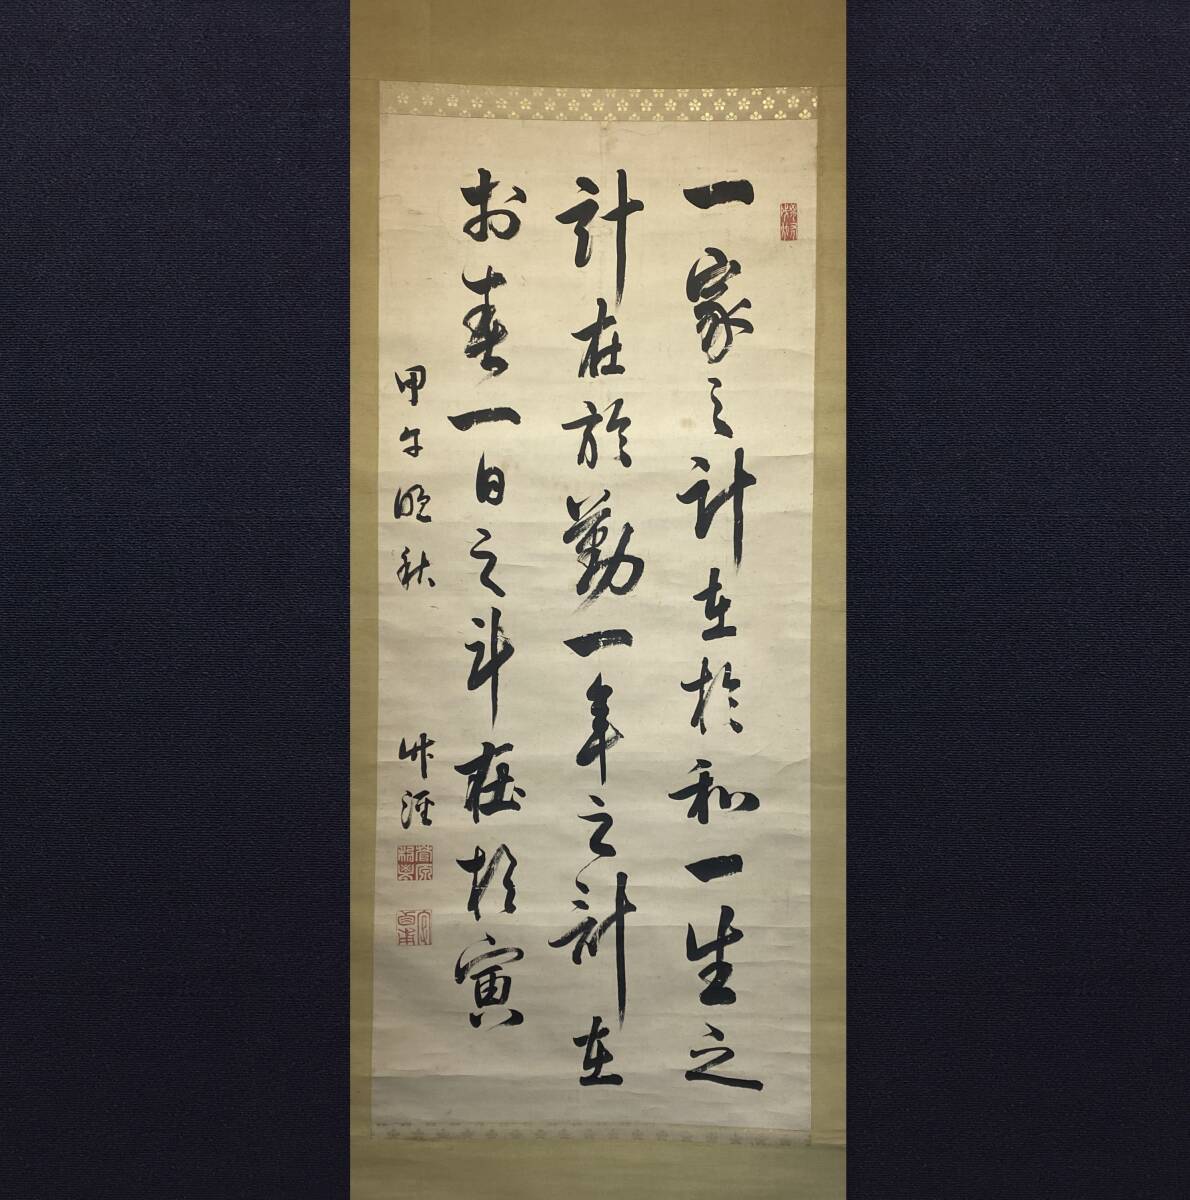 一家之計在於和一生之
計在於勤一年之計在
於春一日之計在於寅
甲午晩秋
竹涇
菅原